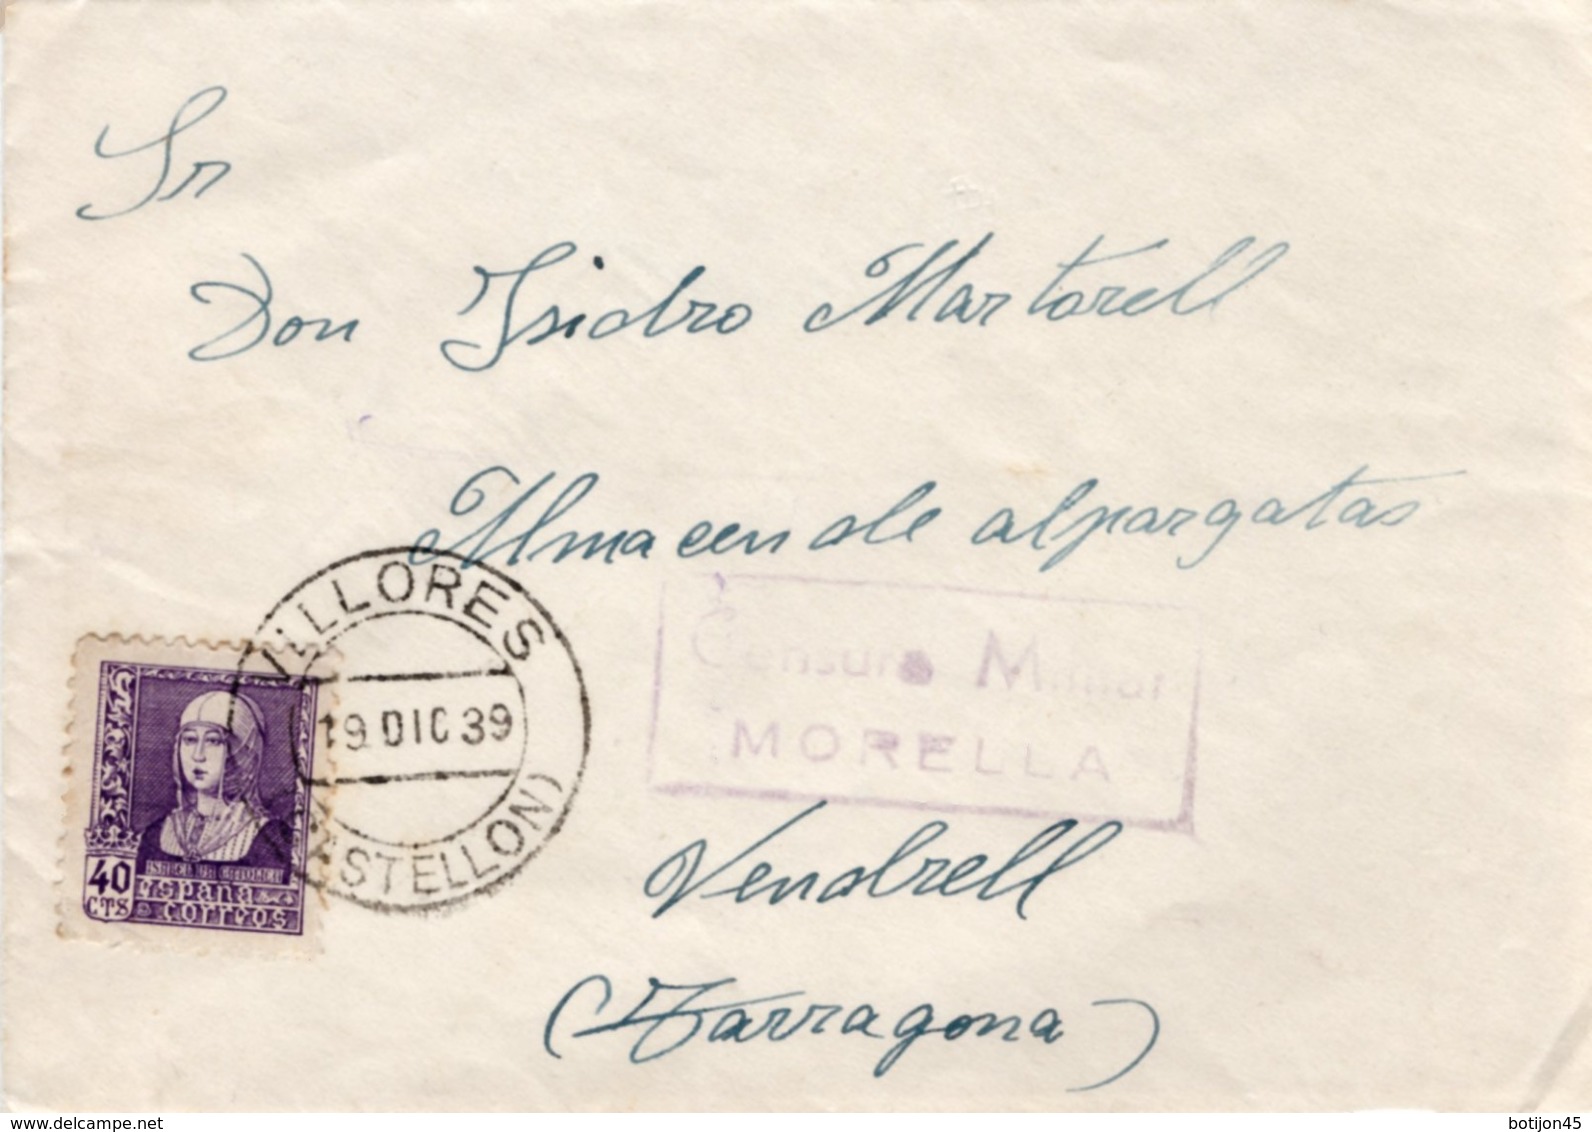 Sr
Don Isidro Martorell
Almacen de alpargatas
VILLORES
19 DIC 39
(CASTELLON)
Censura Militar
MORELLA
ISABEL LA CATOLICA
40 CTS
España
correos
Vendrell
(Tarragona)
www.delcampe.net
botijon45